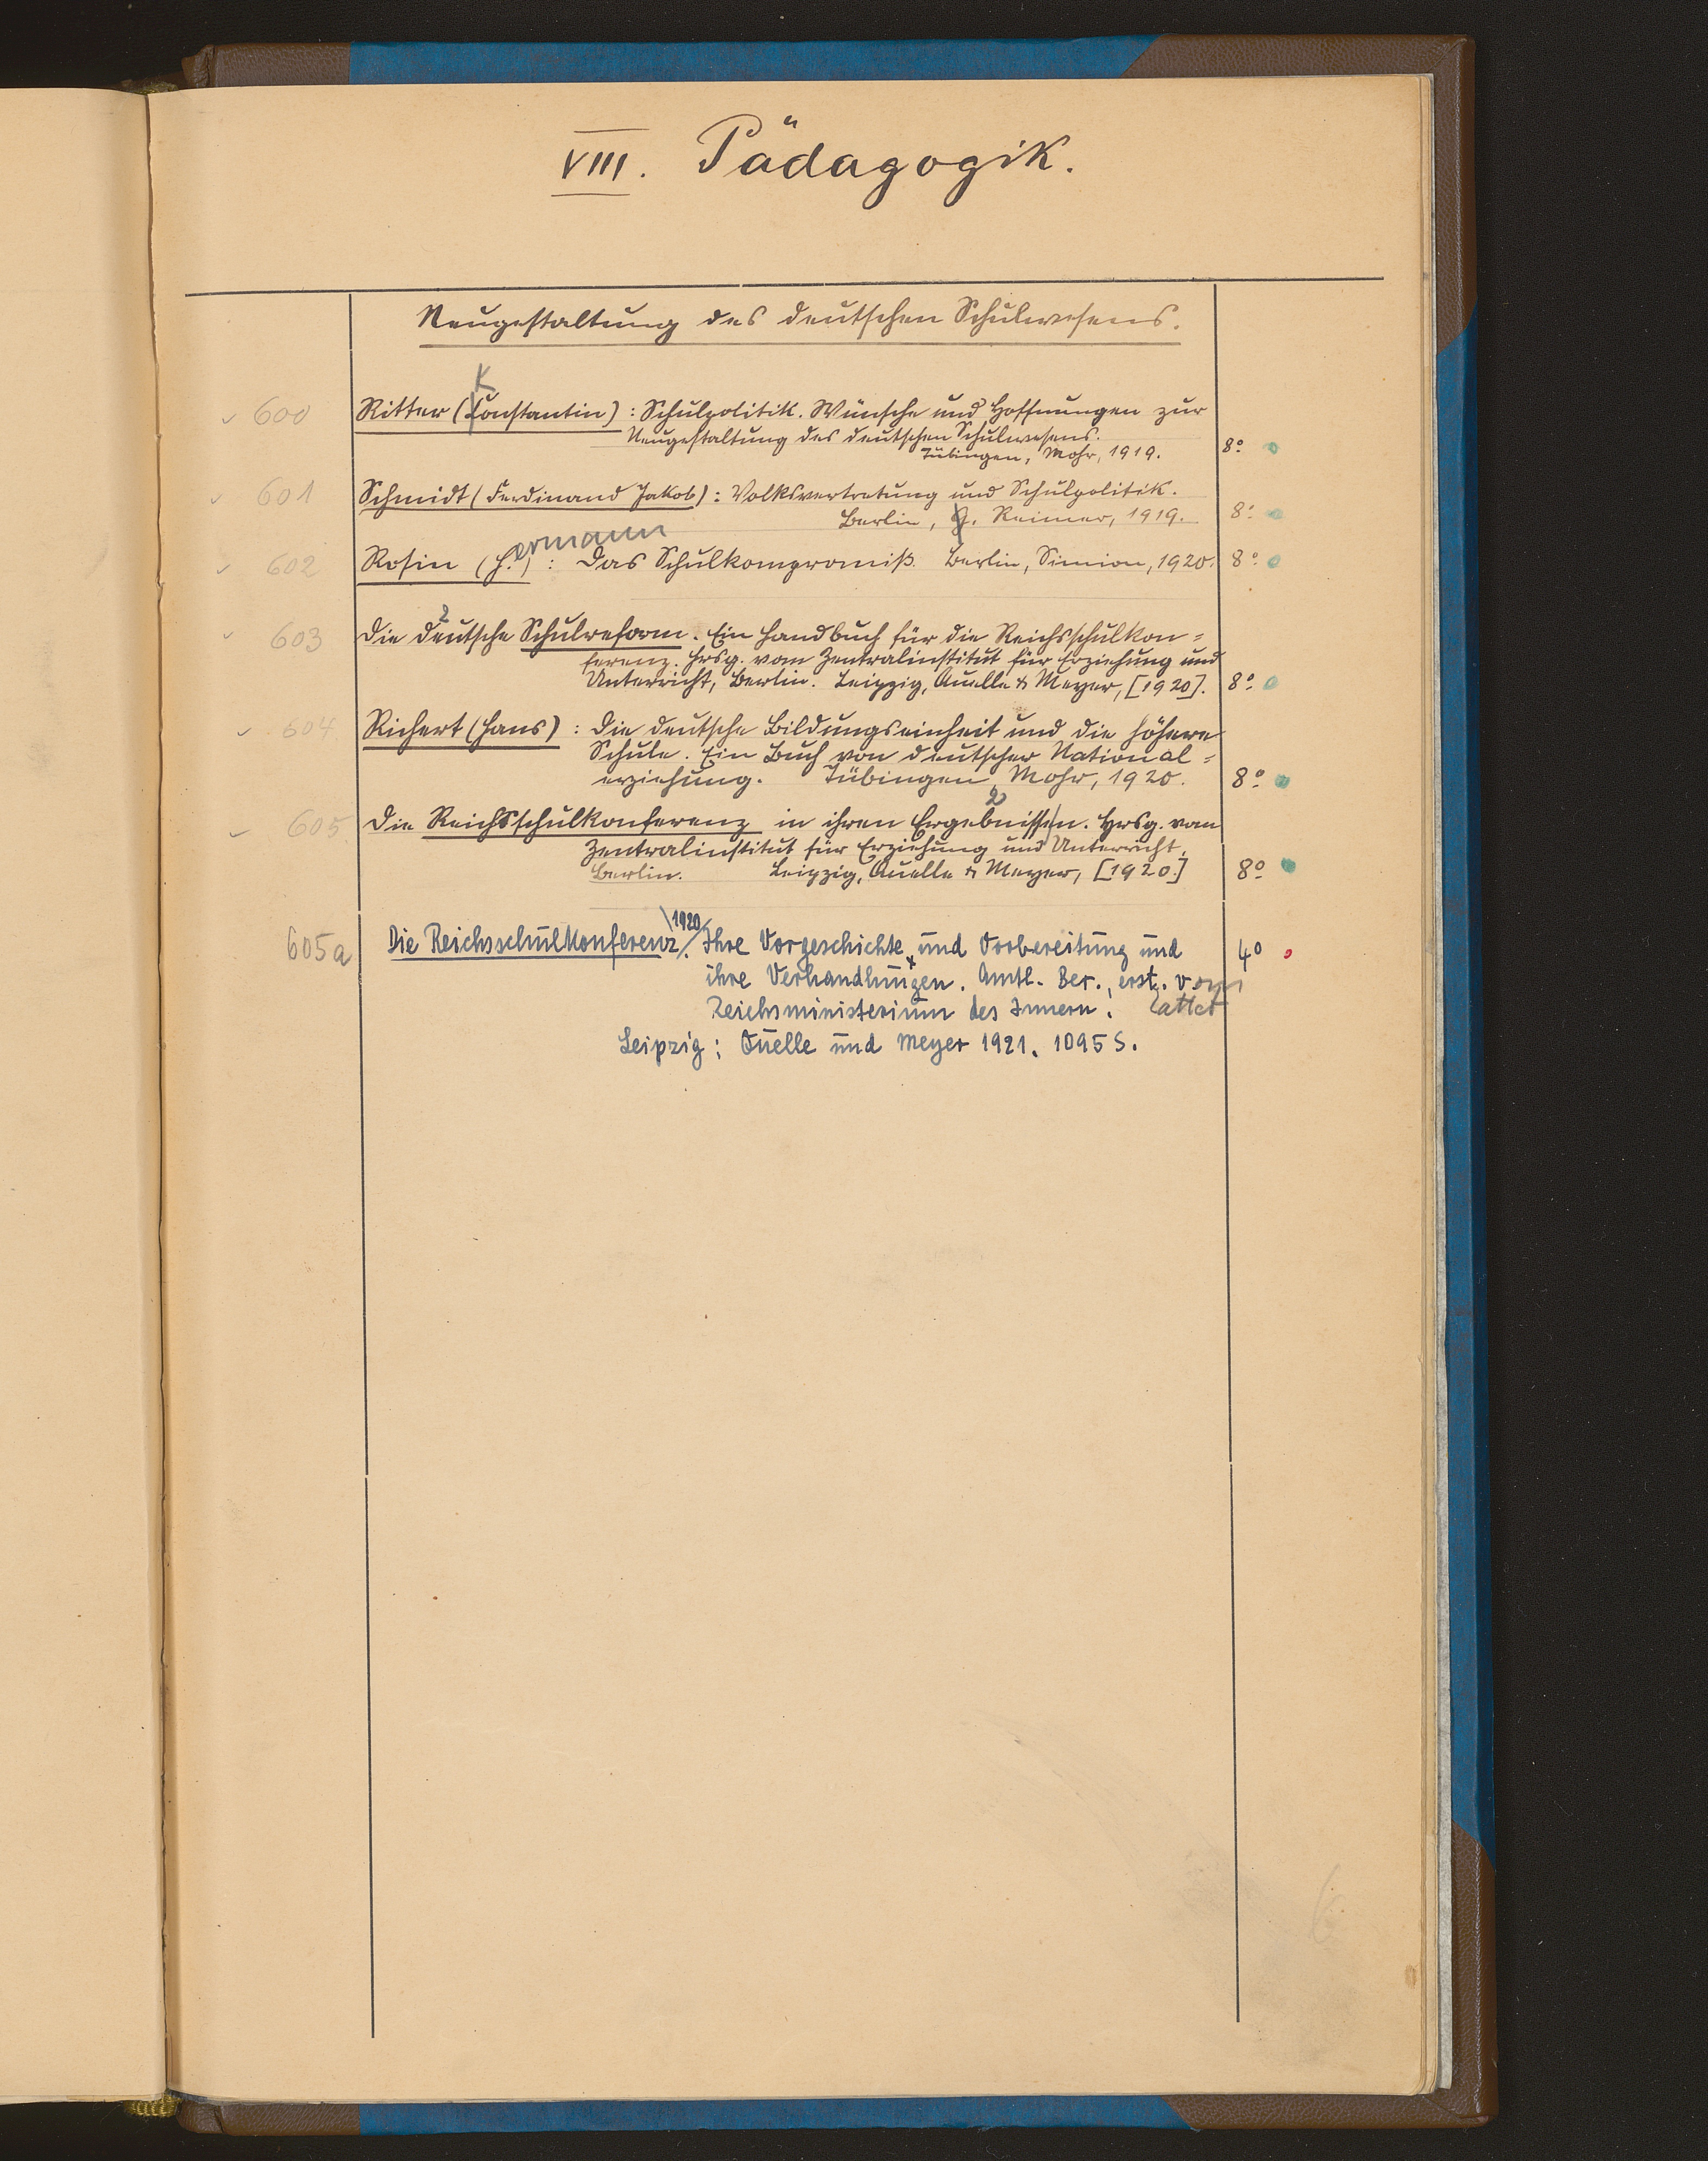 VIII. Pädagogik.
Neugestaltung des deutschen Schulwesens.
K
600 Ritter (Constantin): Schulpolitik. Wünsche und Hoffnungen zur
Neugestaltung des deutschen Schulwesens.
Tübingen, Mohr, 1919. 8°
601 Schmidt (Ferdinand Jakob): Volksvertretung und Schulpolitik.
Berlin, G. Reimer, 1919. 8°
ermann
602 Rosin (H.): Das Schulkompromiß. Berlin, Simion, 1920. 8°
2
603 Die deutsche Schulreform. Ein Handbuch für die Reichsschulkon=
ferenz. Hrsg. vom Zentralinstitut für Erziehung und
Unterricht, Berlin. Leipzig, Quelle & Meyer, [1920]. 8°
604 Richert (Hans): Die deutsche Bildungseinheit und die höhere
Schule. Ein Buch von deutscher National=
erziehung. Tübingen, Mohr, 1920. 8°
2
605 Die Reichsschulkonferenz in ihren Ergebnissen. Hrsg. vom
Zentralinstitut für Erziehung und Unterricht,
Berlin. Leipzig, Quelle & Meyer, [1920.] 8°
1920
605a Die Reichsschulkonferenz. Ihre Vorgeschichte und Vorbereitung und 4°
ihre Verhandlungen. Amtl. Ber., erst. vom
Reichsministerium des Innern.
Leipzig: Quelle und Meyer 1921. 1095 S.